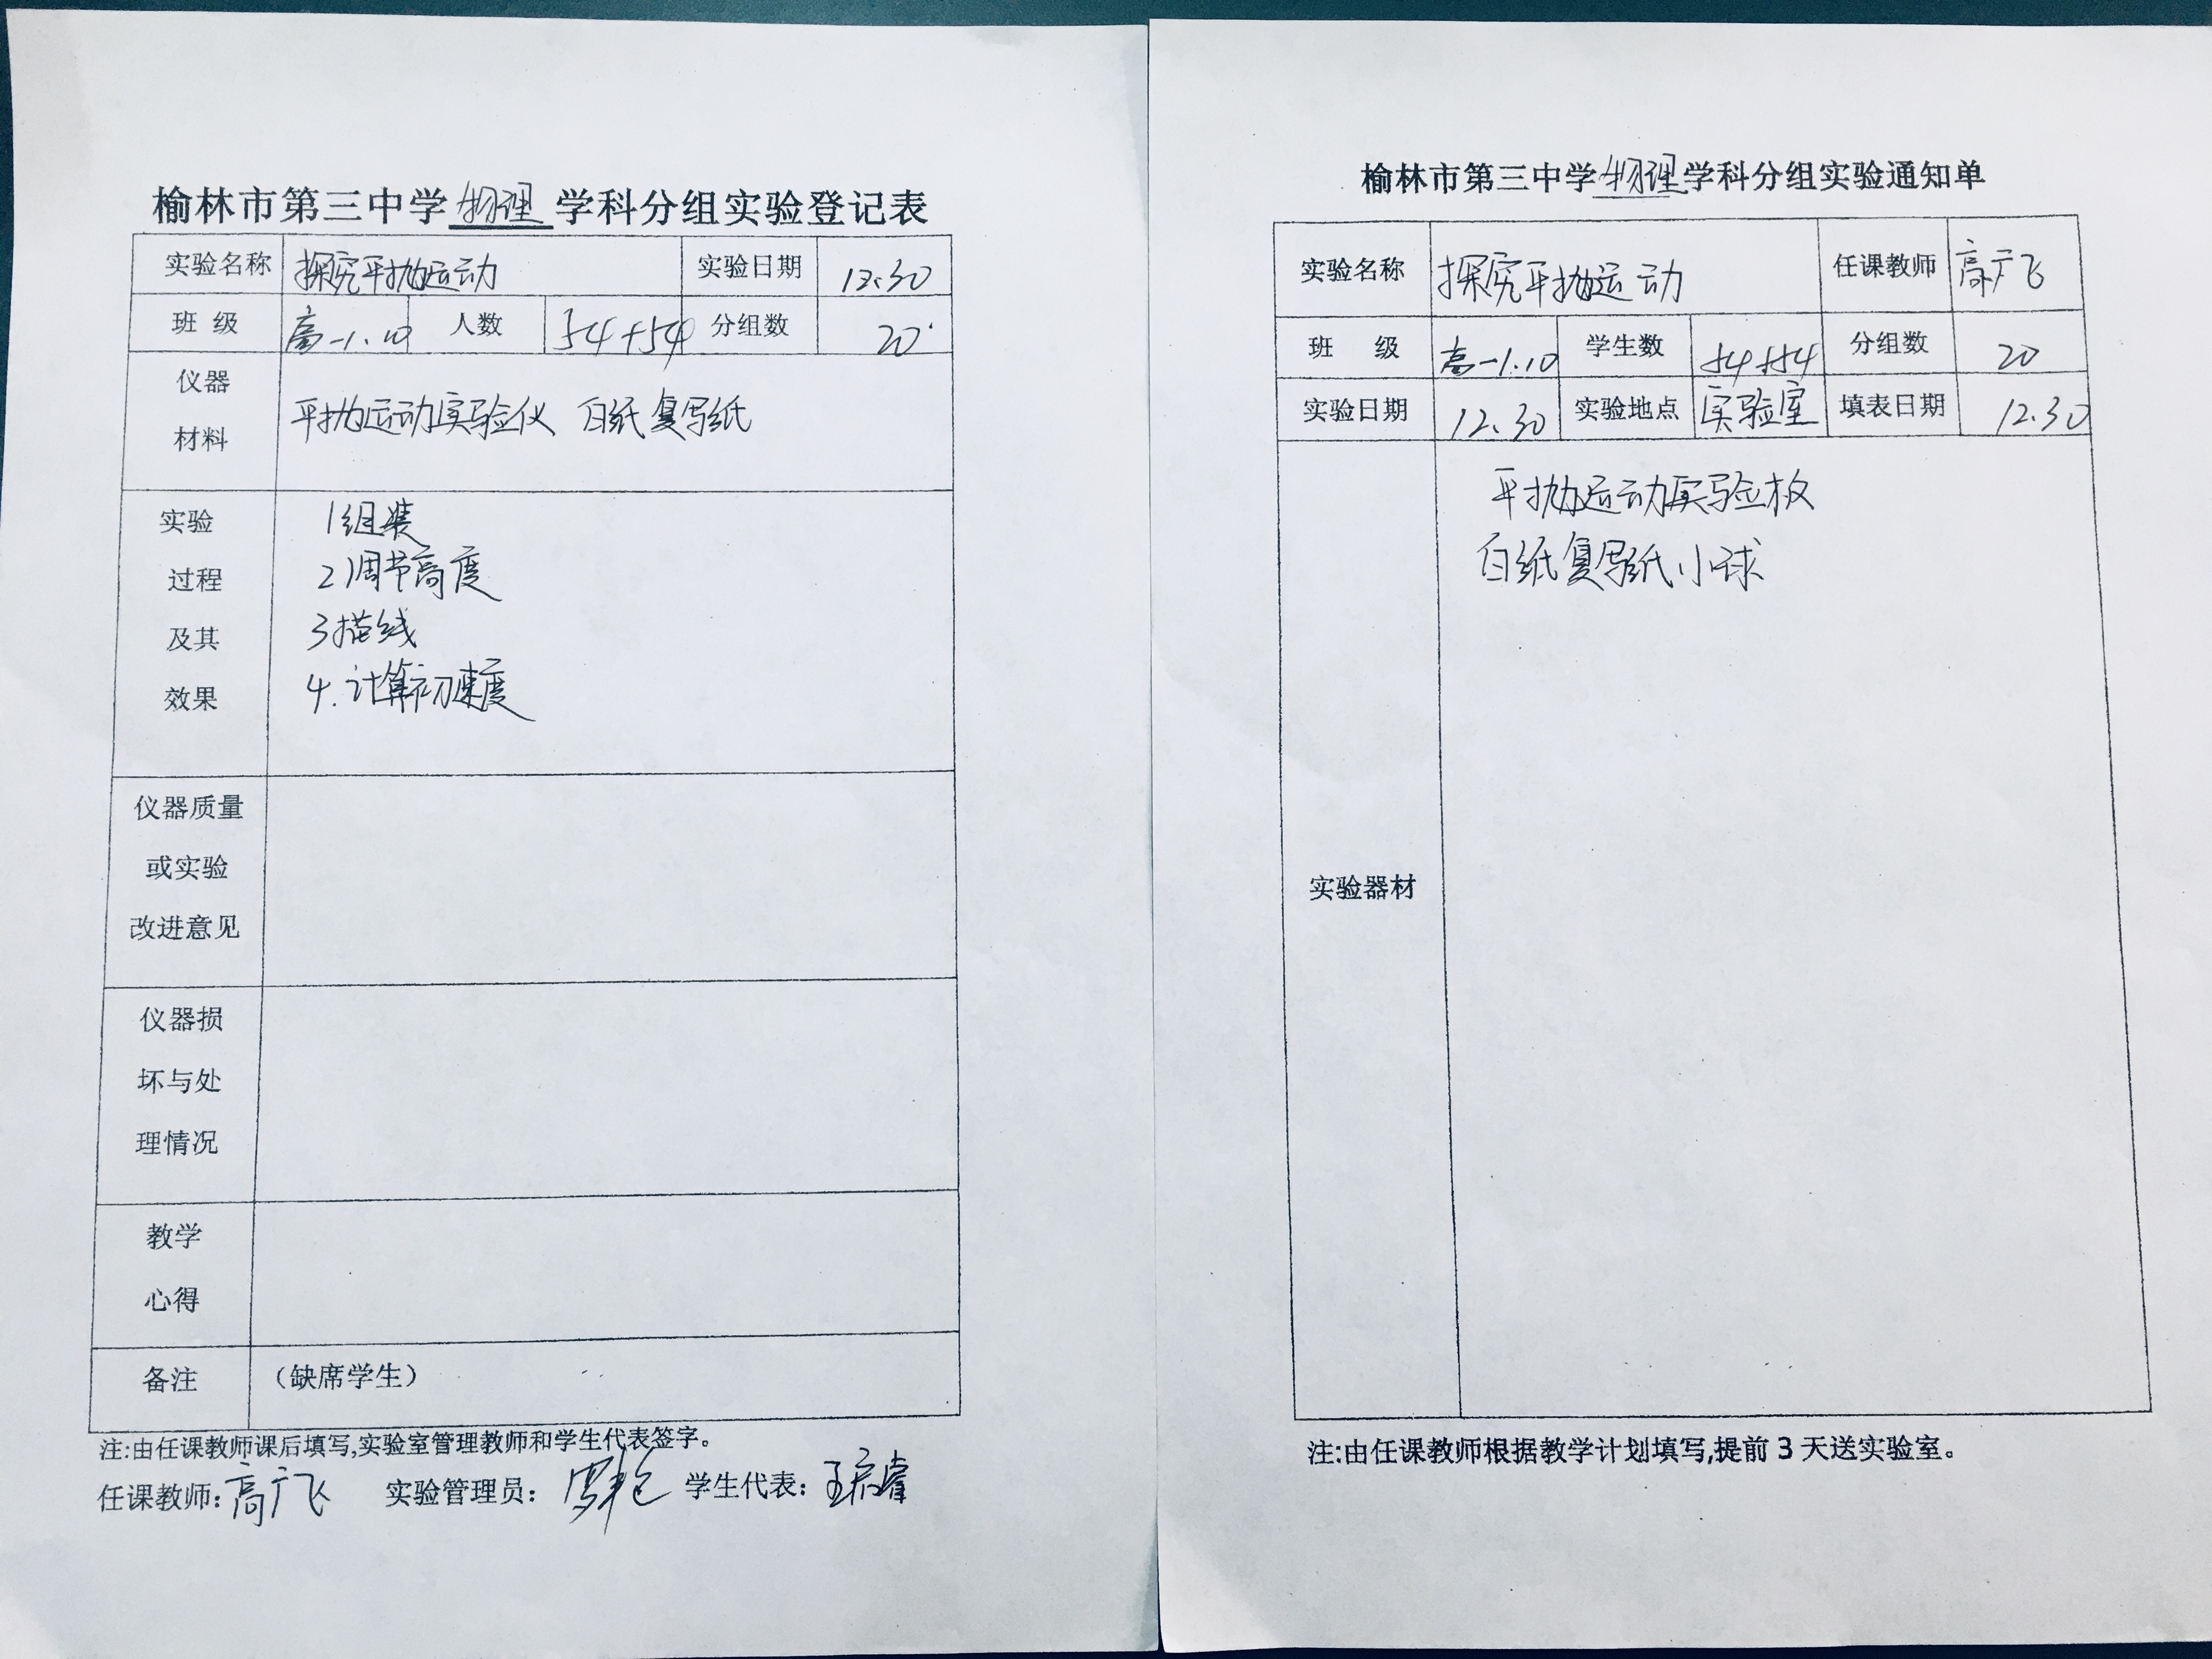 榆林市第三中学物理学科分组实验登记表
实验名称 探究平抛运动 实验日期 12.30
班 级 高一1.10 人数 54+54 分组数 20
仪器
材料
平抛运动实验仪 白纸 复写纸
实验
过程
及其
效果
1组装
2调节高度
3描线
4.计算初速度
仪器质量
或实验
改进意见
仪器损
坏与处
理情况
教学
心得
备注 (缺席学生)
注:由任课教师课后填写,实验室管理教师和学生代表签字。
任课教师:高广飞 实验管理员: 学生代表:
榆林市第三中学物理学科分组实验通知单
实验名称 探究平抛运动 任课教师 高广飞
班 级 高一1.10 学生数 54+54 分组数 20
实验日期 12.30 实验地点 实验室 填表日期 12.30
实验器材
平抛运动实验板
白纸 复写纸 小球
注:由任课教师根据教学计划填写,提前3天送实验室。